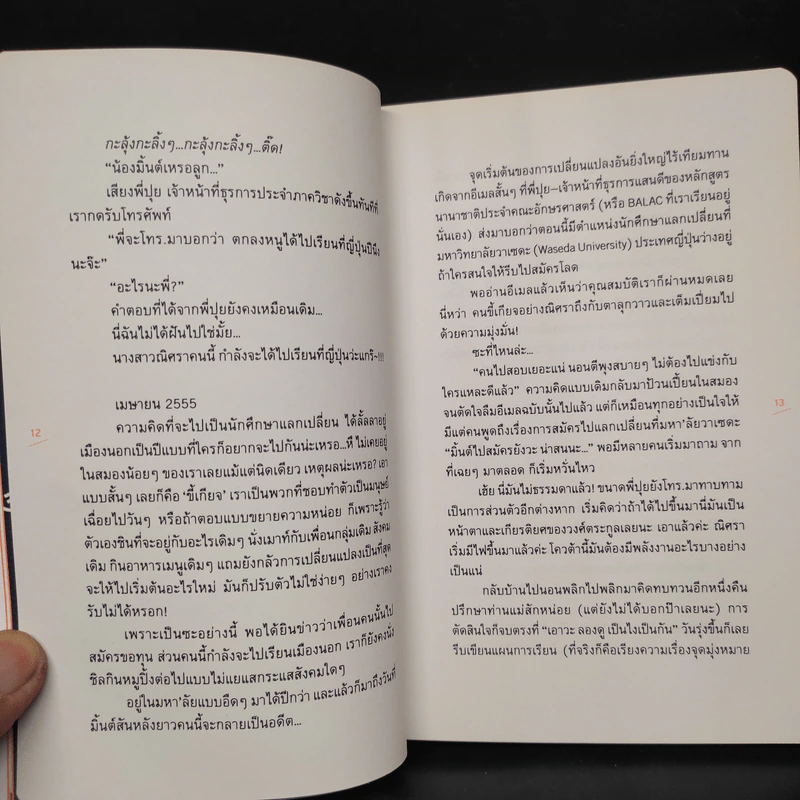 กะลุ้งกะลิ้งๆ...กะลุ้งกะลิ้งๆ...ติ๊ด!
“น้องมิ้นต์เหรอลูก...”
เสียงพี่ปุย เจ้าหน้าที่ธุรการประจำภาควิชาดังขึ้นทันทีที่
เรากดรับโทรศัพท์
“พี่จะโทร.มาบอกว่า ตกลงหนูได้ไปเรียนที่ญี่ปุ่นปีนึง
นะจ๊ะ”
“อะไรนะพี่?”
คำตอบที่ได้จากพี่ปุยยังคงเหมือนเดิม...
นี่ฉันไม่ได้ฝันไปใช่มั้ย...
นางสาวณิศราคนนี้ กำลังจะได้ไปเรียนที่ญี่ปุ่นว่ะแกร๊~!!!
เมษายน 2555
ความคิดที่จะไปเป็นนักศึกษาแลกเปลี่ยน ได้ลั้ลลาอยู่
เมืองนอกเป็นปีแบบที่ใครก็อยากจะไปกันน่ะเหรอ...หึ ไม่เคยอยู่
ในสมองน้อยๆ ของเราเลยแม้แต่นิดเดียว เหตุผลน่ะเหรอ? เอา
แบบสั้นๆ เลยก็คือ ‘ขี้เกียจ’ เราเป็นพวกที่ชอบทำตัวเป็นมนุษย์
เฉื่อยไปวันๆ หรือถ้าตอบแบบขยายความหน่อย ก็เพราะรู้ว่า
ตัวเองชินที่จะอยู่กับอะไรเดิมๆ นั่งเมาท์กับเพื่อนกลุ่มเดิม สังคม
เดิม กินอาหารเมนูเดิมๆ แถมยังกลัวการเปลี่ยนแปลงเป็นที่สุด
จะให้ไปเริ่มต้นอะไรใหม่ มันก็ปรับตัวไม่ใช่ง่ายๆ อย่างเราคง
รับไม่ได้หรอก!
เพราะเป็นซะอย่างนี้ พอได้ยินข่าวว่าเพื่อนคนนั้นไป
สมัครขอทุน ส่วนคนนี้กำลังจะไปเรียนเมืองนอก เราก็ยังคงนั่ง
ชิลกินหมูปิ้งต่อไปแบบไม่แยแสกระแสสังคมใดๆ
อยู่ในมหา’ลัยแบบอืดๆ มาได้ปีกว่า และแล้วก็มาถึงวันที่
มิ้นต์สันหลังยาวคนนี้จะกลายเป็นอดีต...
12
จุดเริ่มต้นของการเปลี่ยนแปลงอันยิ่งใหญ่ไร้เทียมทาน
เกิดจากอีเมลสั้นๆ ที่พี่ปุย–เจ้าหน้าที่ธุรการแสนดีของหลักสูตร
นานาชาติประจำคณะอักษรศาสตร์ (หรือ BALAC ที่เราเรียนอยู่
นั่นเอง) ส่งมาบอกว่าตอนนี้มีตำแหน่งนักศึกษาแลกเปลี่ยนที่
มหาวิทยาลัยวาเซดะ (Waseda University) ประเทศญี่ปุ่นว่างอยู่
ถ้าใครสนใจให้รีบไปสมัครโลด
พออ่านอีเมลแล้วเห็นว่าคุณสมบัติเราก็ผ่านหมดเลย
นี่หว่า คนขี้เกียจอย่างณิศราถึงกับตาลุกวาวและเต็มเปี่ยมไป
ด้วยความมุ่งมั่น!
ซะที่ไหนล่ะ...
“คนไปสอบเยอะแน่ นอนตีพุงสบายๆ ไม่ต้องไปแข่งกับ
ใครแหละดีแล้ว” ความคิดแบบเดิมกลับมาป้วนเปี้ยนในสมอง
จนตัดใจลืมอีเมลฉบับนั้นไปแล้ว แต่ก็เหมือนทุกอย่างเป็นใจให้
มีแต่คนพูดถึงเรื่องการสมัครไปแลกเปลี่ยนที่มหา’ลัยวาเซดะ
“มิ้นต์ไปสมัครยังวะ น่าสนนะ...” พอมีหลายคนเริ่มมาถาม จาก
ที่เฉยๆ มาตลอด ก็เริ่มหวั่นไหว
เฮ้ย นี่มันไม่ธรรมดาแล้ว! ขนาดพี่ปุยยังโทร.มาทาบทาม
เป็นการส่วนตัวอีกต่างหาก เริ่มคิดว่าถ้าได้ไปขึ้นมานี่มันเป็น
หน้าตาและเกียรติยศของวงศ์ตระกูลเลยนะ เอาแล้วค่ะ ณิศรา
เริ่มมีไฟขึ้นมาแล้วค่ะ โควต้านี้มันต้องมีพลังงานอะไรบางอย่าง
เป็นแน่
กลับบ้านไปนอนพลิกไปพลิกมาคิดทบทวนอีกหนึ่งคืน
ปรึกษาท่านแม่สักหน่อย (แต่ยังไม่ได้บอกป๊าเลยนะ) การ
ตัดสินใจก็จบตรงที่ “เอาวะ ลองดู เป็นไงเป็นกัน” วันรุ่งขึ้นก็เลย
รีบเขียนแผนการเรียน (ที่จริงก็คือเรียงความเรื่องจุดมุ่งหมาย
13